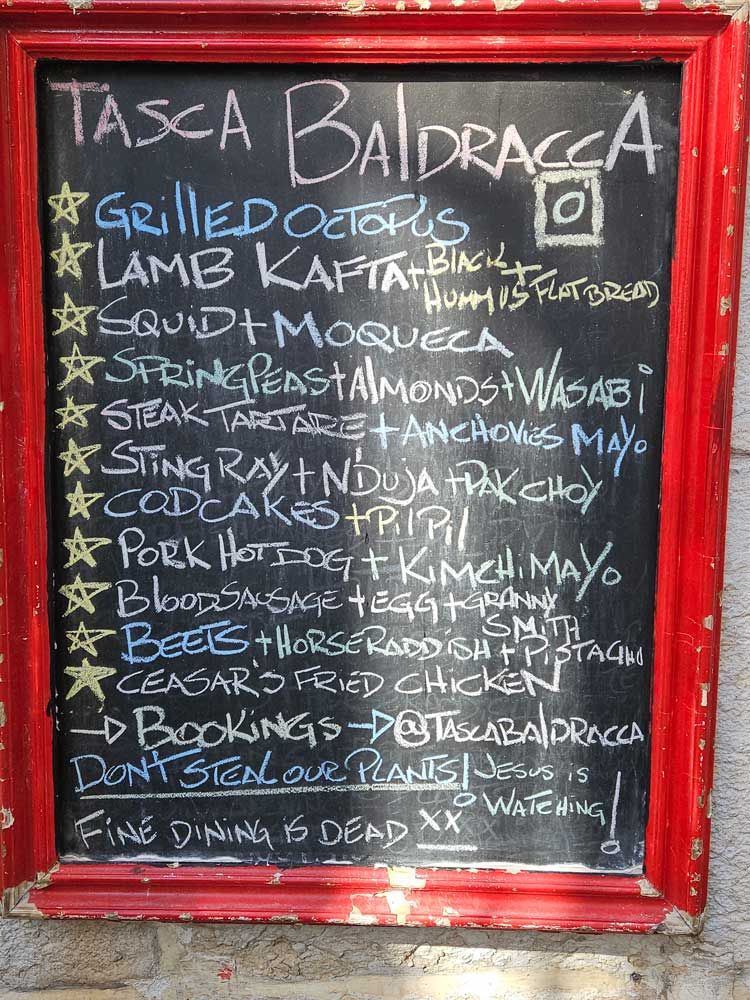 TASCA BAlDRACCA
GRIllED OCTOPUS
LAMB KAFTA + BlACK + HUMMUS FLATBREAD
SQUID + MOQUECA
SPRINGPEAS + AlMONDS + WASABi
STEAK TARTARE + ANCHOVIES MAYO
STING RAY + N'DUJA + PAK CHOY
CODCAKES + Pil Pil
PORK HOT DOG + KIMCHi MAYO
BlOODSAUSAGE + EGG + GRANNY SMITH
BEETS + HORSERADDiSH + PiSTACHIO
CEASAR'S FRIED CHICKEN
→ BOOKINGS → @TASCABAlDRACCA
DON'T STEAL OUR PLANTS! JESUS IS WATCHING!
FINE DINING IS DEAD XX